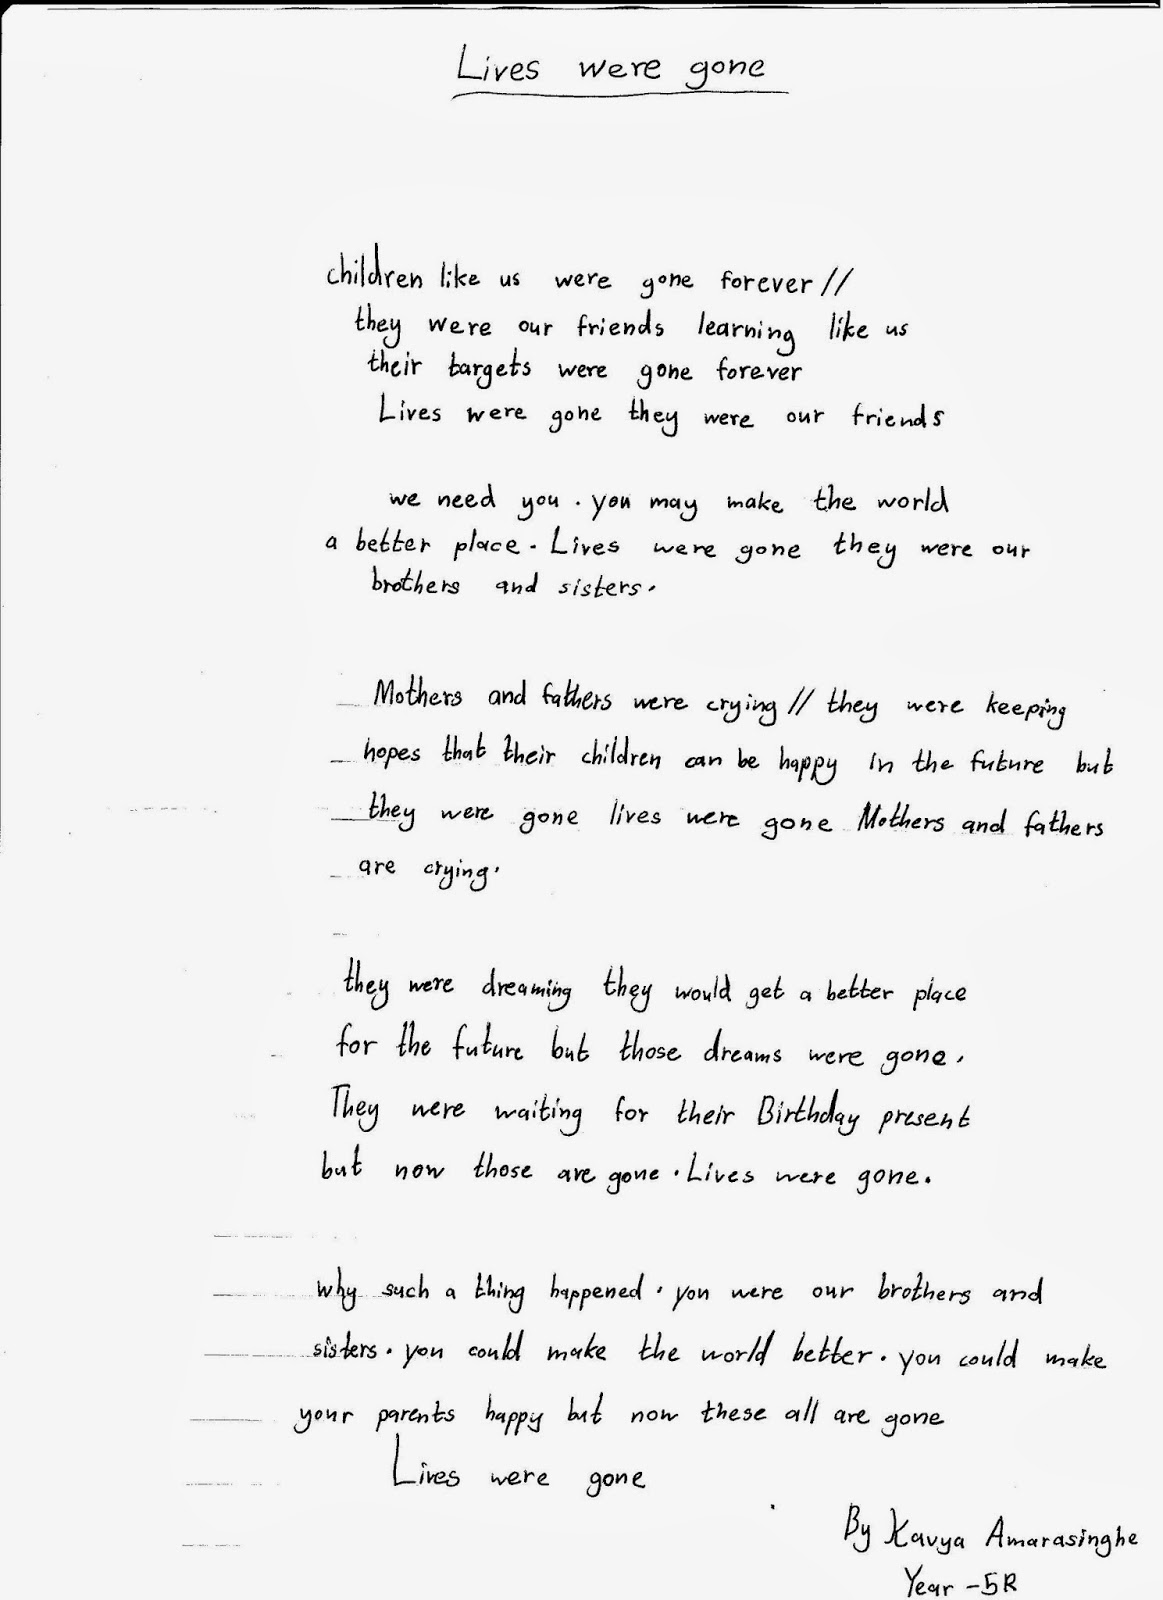 Lives were gone
children like us were gone forever //
they were our friends learning like us
their targets were gone forever
Lives were gone they were our friends
we need you. you may make the world
a better place. Lives were gone they were our
brothers and sisters.
Mothers and fathers were crying // they were keeping
hopes that their children can be happy in the future but
they were gone lives were gone Mothers and fathers
are crying.
they were dreaming they would get a better place
for the future but those dreams were gone.
They were waiting for their Birthday present
but now those are gone. Lives were gone.
why such a thing happened. you were our brothers and
sisters. you could make the world better. you could make
your parents happy but now these all are gone
Lives were gone
By Kavya Amarasinghe
Year -5R